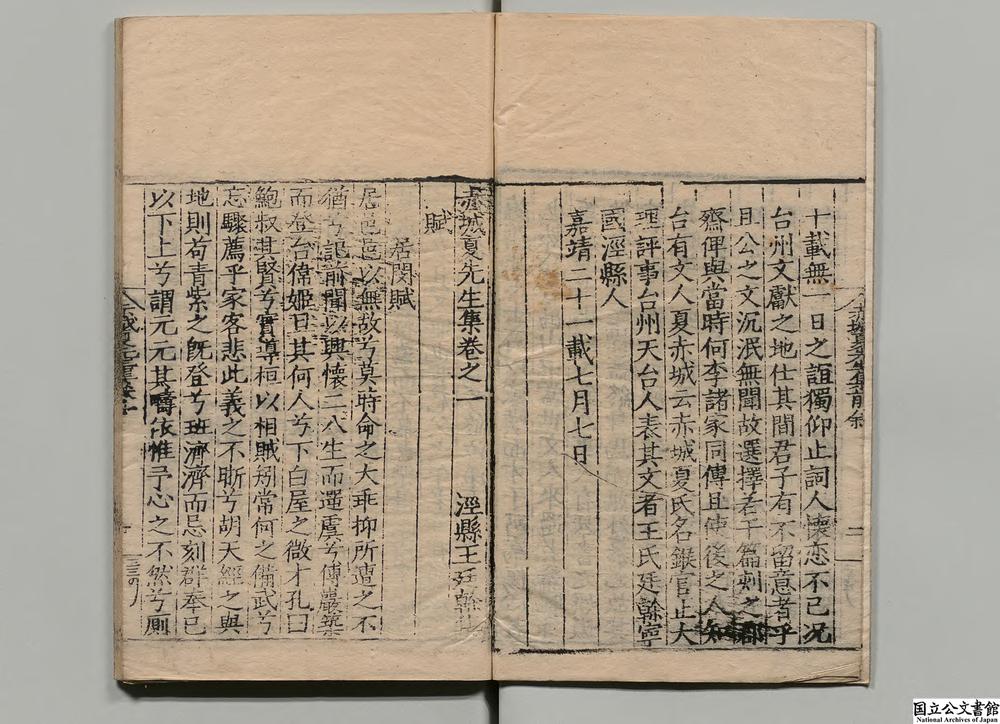 十載無一日之誼獨仰止詞人懷恋不已况
台州文獻之地仕其間君子有不留意者乎
且公之文沉泯無聞故選擇若干篇刻之郡
齋俾與當時何李諸家同傳且使後之人知
台有文人夏赤城云赤城夏氏名鍭官止大
理評事台州天台人表其文者王氏廷榦寧
國涇縣人
嘉靖二十一載七月七日
赤城夏先生集卷之一
涇縣王廷榦
賦
居閑賦
居邑邑以無故兮莫時命之大乖抑所遭之不
猶兮記前聞以興懷二八生而遭虞兮傅巖築
而登台偉姬旦其何人兮下白屋之微才孔曰
鮑叔其賢兮實導桓以相賊矧常何之備武兮
忘驟薦乎家客悲此義之不晣兮胡天經之與
地則苟青紫之旣登兮班濟濟而忌刻群奉已
以下上兮謂元元其疇依惟予心之不然兮厠
国立公文書館
National Archives of Japan